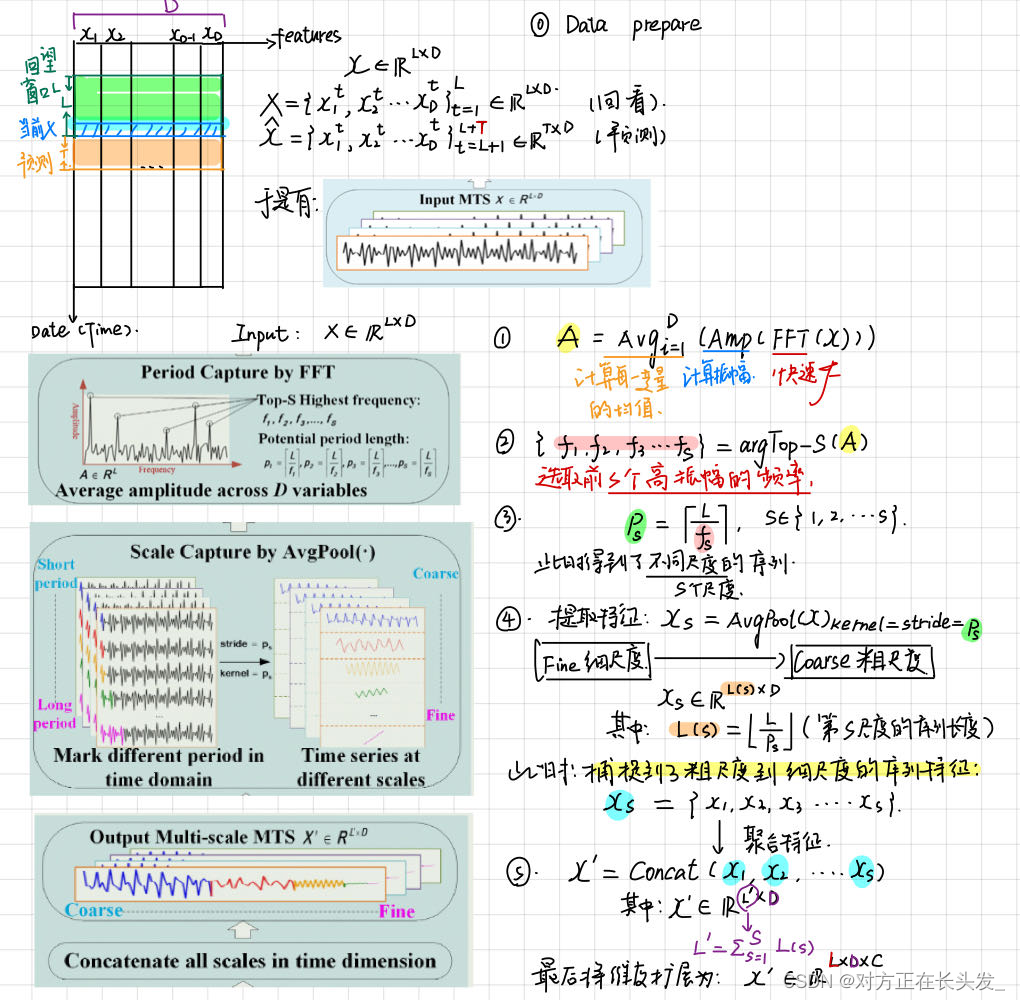 D
x₁ x₂ x_{D-1} x_D
features
回望
窗口L
L
当前X
预测
T
...
Date (Time).
⓪ Data prepare
X ∈ ℝ^{L×D}
X = {x₁ᵗ, x₂ᵗ ⋯ x_Dᵗ}_{t=1}^{L} ∈ ℝ^{L×D}. (回看).
X̂ = {x₁ᵗ, x₂ᵗ ⋯ x_Dᵗ}_{t=L+1}^{L+T} ∈ ℝ^{T×D} (预测)
于是有:
Input MTS X ∈ R^{L×D}
Input: X ∈ ℝ^{L×D}
Period Capture by FFT
Amplitude
Top-S Highest frequency:
f₁, f₂, f₃,..., f_S
Potential period length:
p₁ = ⌈L/f₁⌉, p₂ = ⌈L/f₂⌉, p₃ = ⌈L/f₃⌉,..., p_S = ⌈L/f_S⌉
A ∈ R^L
Frequency
Average amplitude across D variables
Scale Capture by AvgPool(·)
Short
period
Coarse
stride = pₛ
kernel = pₛ
Long
period
Fine
...
...
Mark different period in
time domain
Time series at
different scales
Output Multi-scale MTS X' ∈ R^{L'×D}
Coarse
Fine
Concatenate all scales in time dimension
① A = Avg_{i=1}^{D} (Amp(FFT(X)))
计算每一变量
的均值.
计算振幅.
快速f
② {f₁, f₂, f₃ ⋯ fₛ} = argTop-S(A)
选取前S个高振幅的频率.
③. Pₛ = ⌈L/fₛ⌉, S∈{1, 2, ⋯ S}.
此时得到了不同尺度的序列.
S个尺度.
④. 提取特征: Xₛ = AvgPool(X)_{kernel=stride=Pₛ}
Fine 细尺度
Coarse 粗尺度
Xₛ ∈ ℝ^{L(s)×D}
其中: L(s) = ⌊L/Pₛ⌋ (第S尺度的序列长度)
此时: 捕捉到了粗尺度到细尺度的序列特征:
Xₛ = {x₁, x₂, x₃ ⋯⋯ xₛ}.
聚合特征.
⑤. X' = Concat(x₁, x₂, ⋯⋯ xₛ)
其中: X' ∈ ℝ^{L'×D}
L' = Σ_{s=1}^{S} L(s)
最后将维度扩展为: X' ∈ ℝ^{L×D×C}
CSDN @对方正在长头发_